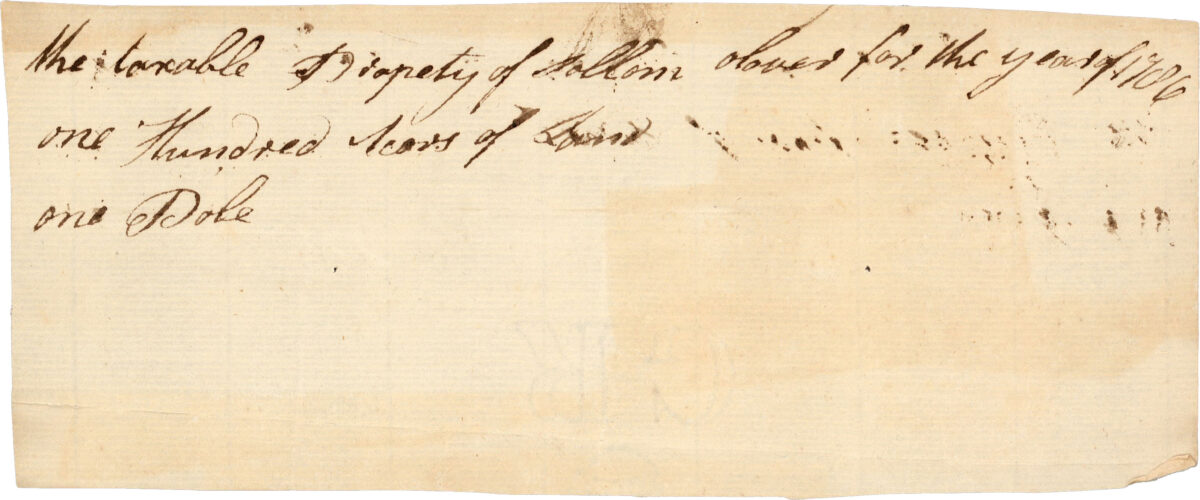 the taxable Propety of Sollom olover for the year of 1786
one Hundred Acors of Land
one Pole